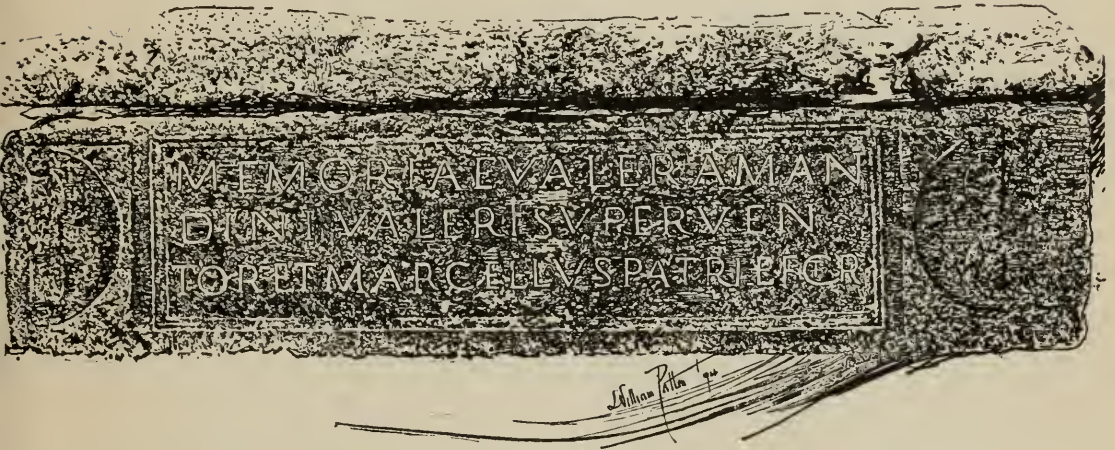 MEMORIAEVALERAMAN
DINIVALERISVPERVEN
TORETMARCELLVSPATRIBFCR
William